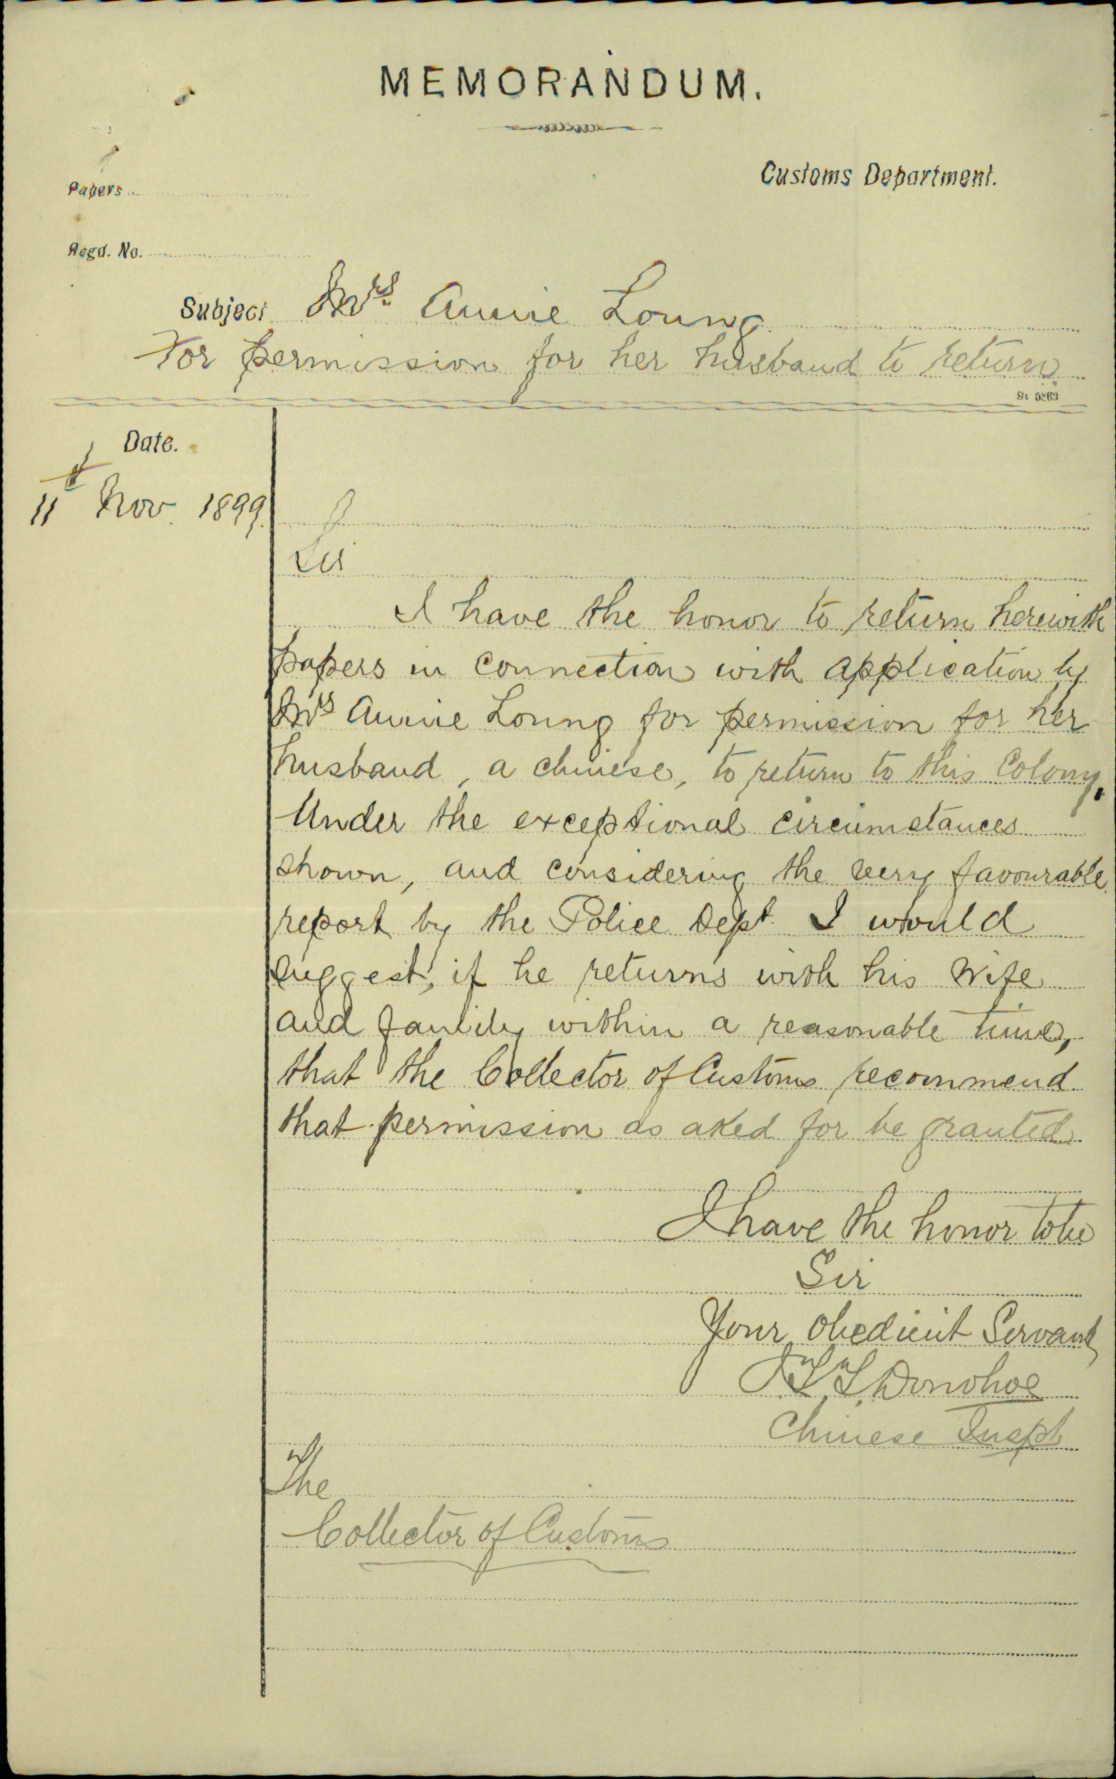 MEMORANDUM.
Customs Department.
Papers
Regd. No.
Subject Mrs Annie Loung
For permission for her husband to return
St 5263
Date.
11th Nov. 1899.
Sir
I have the honor to return herewith
papers in connection with application by
Mrs Annie Loung for permission for her
husband, a chinese, to return to this Colony.
Under the exceptional circumstances
shown, and considering the very favourable
report by the Police Dept. I would
suggest, if he returns with his wife
and family within a reasonable time,
that the Collector of Customs recommend
that permission as aked for be granted
I have the honor to be
Sir
Your Obedient Servant
Donohoe
Chinese Inspt
The
Collector of Customs